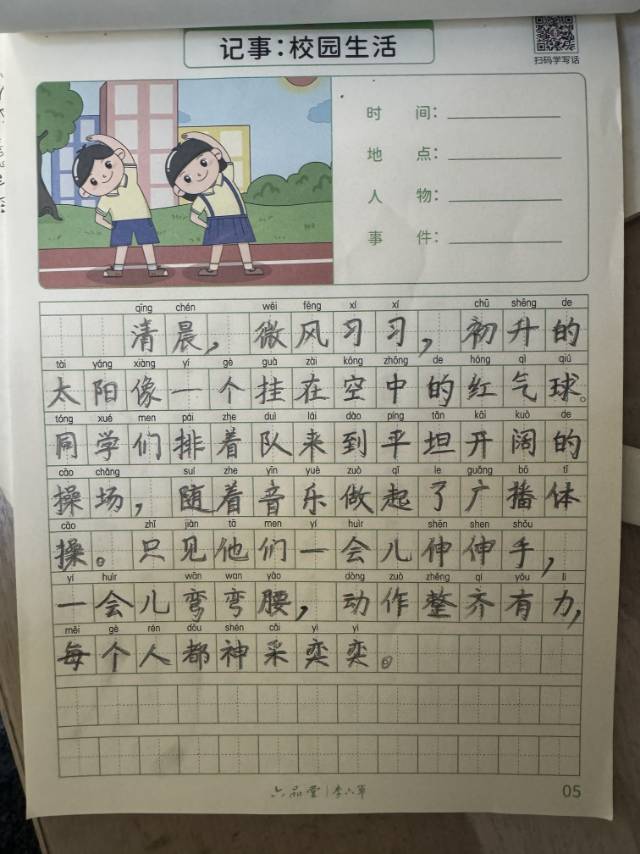 记事：校园生活
扫码学写话
时 间：
地 点：
人 物：
事 件：
qīng chén wēi fēng xí xí chū shēng de
清晨，微风习习，初升的
tài yáng xiàng yí gè guà zài kōng zhōng de hóng qì qiú
太阳像一个挂在空中的红气球。
tóng xué men pái zhe duì lái dào píng tǎn kāi kuò de
同学们排着队来到平坦开阔的
cāo chǎng suí zhe yīn yuè zuò qǐ le guǎng bō tǐ
操场，随着音乐做起了广播体
cāo zhǐ jiàn tā men yí huìr shēn shen shǒu
操。只见他们一会儿伸伸手，
yí huìr wān wan yāo dòng zuò zhěng qí yǒu lì
一会儿弯弯腰，动作整齐有力，
měi gè rén dōu shén cǎi yì yì
每个人都神采奕奕。
六品堂 | 李六军
05